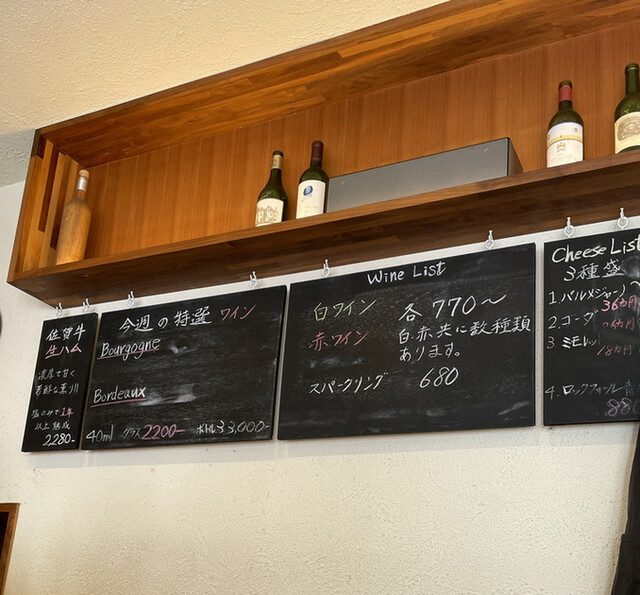 佐賀牛
生ハム
濃厚で甘く
芳醇な薫り!!
塩のみで1年
以上熟成
2,280-
今週の特選 ワイン
Bourgogne
Bordeaux
40ml グラス 2200- ボトル33,000-
Wine List
白ワイン 各 770～
赤ワイン 白・赤共に数種類
あります。
スパークリング 680
Cheese List
3種盛
1. パルメジャーノ
36ヵ月
2. ゴーダ
3. ミモレット
18ヵ月
4. ロックフォール